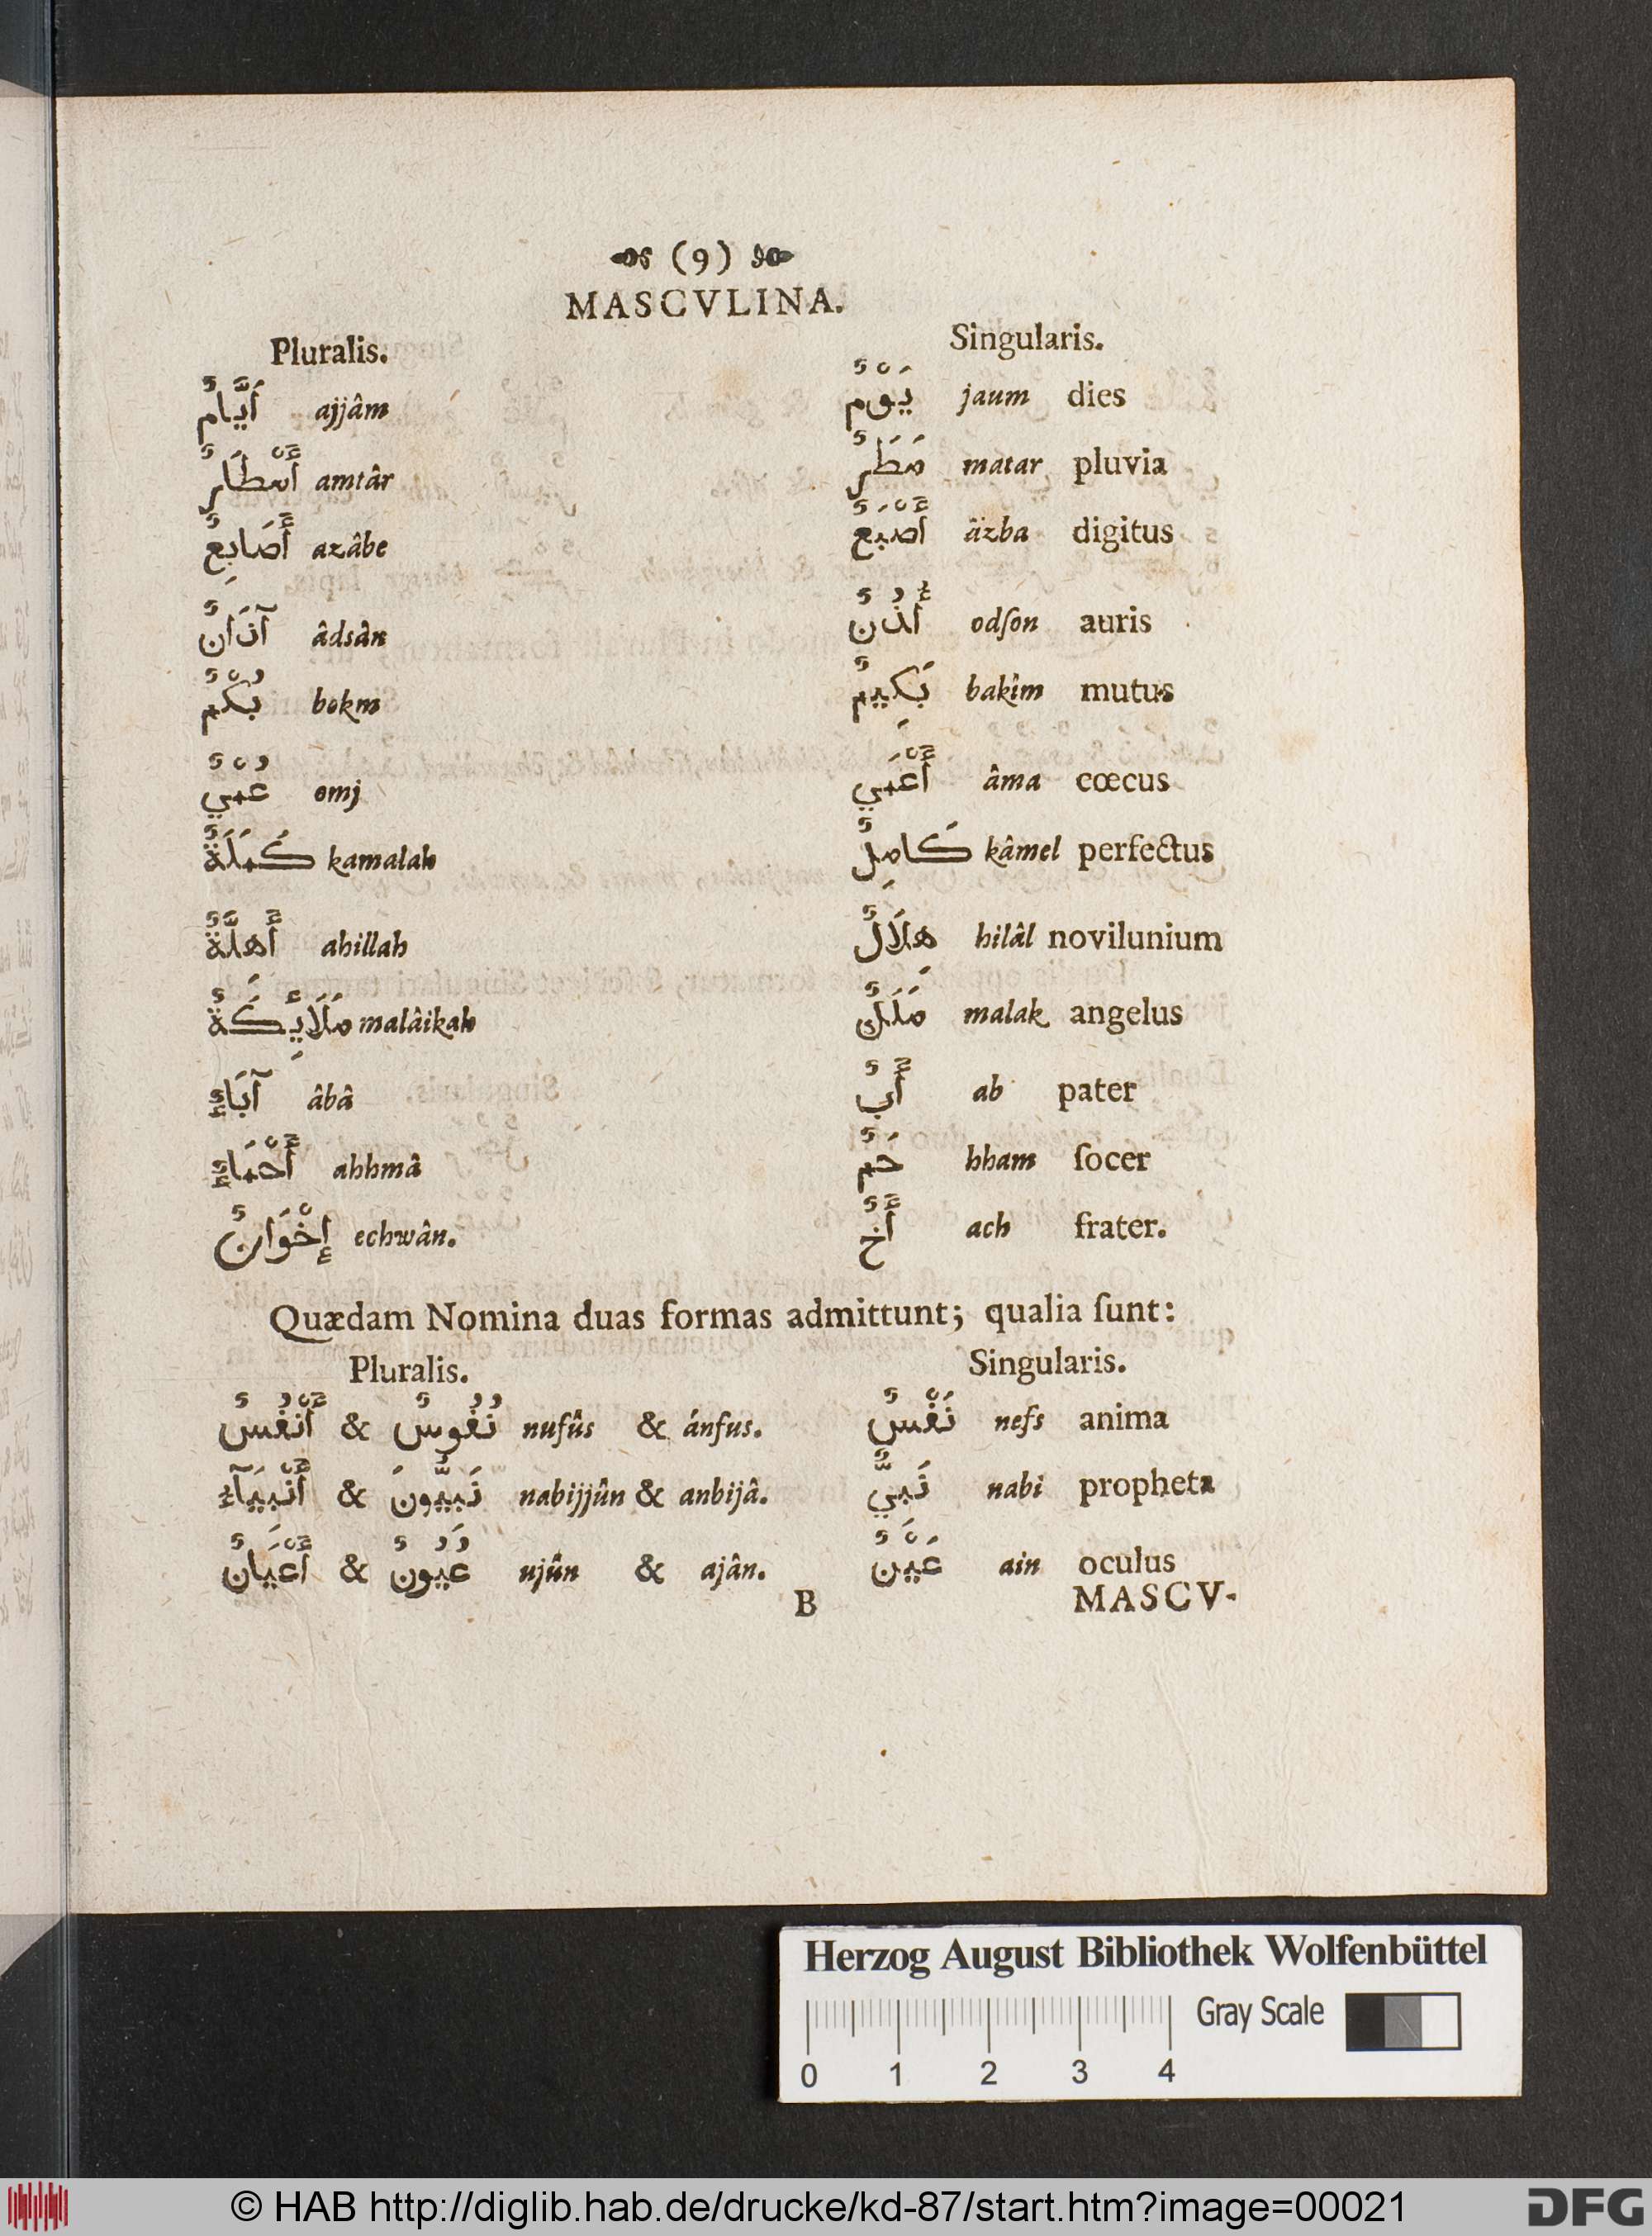 (9)
MASCVLINA.
Pluralis. Singularis.
أَيَّامٌ ajjâm يَوْمٌ jaum dies
أَمْطَارٌ amtâr مَطَرٌ matar pluvia
أَصَابِعٌ azâbe أَصْبَعٌ äzba digitus
آذَانٌ âdsân أُذُنٌ odſon auris
بُكْمٌ bokm بَكِيمٌ bakîm mutus
عُمْيٌ omj أَعْمَي âma cœcus
كَمَلَةٌ kamalah كَامِلٌ kâmel perfectus
أَهِلَّةٌ ahillah هِلَالٌ hilâl novilunium
مَلَائِكَةٌ malâikah مَلَكٌ malak angelus
آبَاءٌ âbâ أَبٌ ab pater
أَحْمَاءٌ ahhmâ حَمٌ hham ſocer
إِخْوَانٌ echwân. أَخٌ ach frater.
Quædam Nomina duas formas admittunt; qualia ſunt:
Pluralis. Singularis.
أَنْفُسٌ & نُفُوسٌ nufûs & ánfus. نَفْسٌ nefs anima
أَنْبِيَآءُ & نَبِيُّونَ nabijjûn & anbijâ. نَبِيٌّ nabi propheta
أَعْيَانٌ & عُيُونٌ ujûn & ajân. عَيْنٌ ain oculus
B MASCV-
Herzog August Bibliothek Wolfenbüttel
Gray Scale
0 1 2 3 4
© HAB http://diglib.hab.de/drucke/kd-87/start.htm?image=00021 DFG